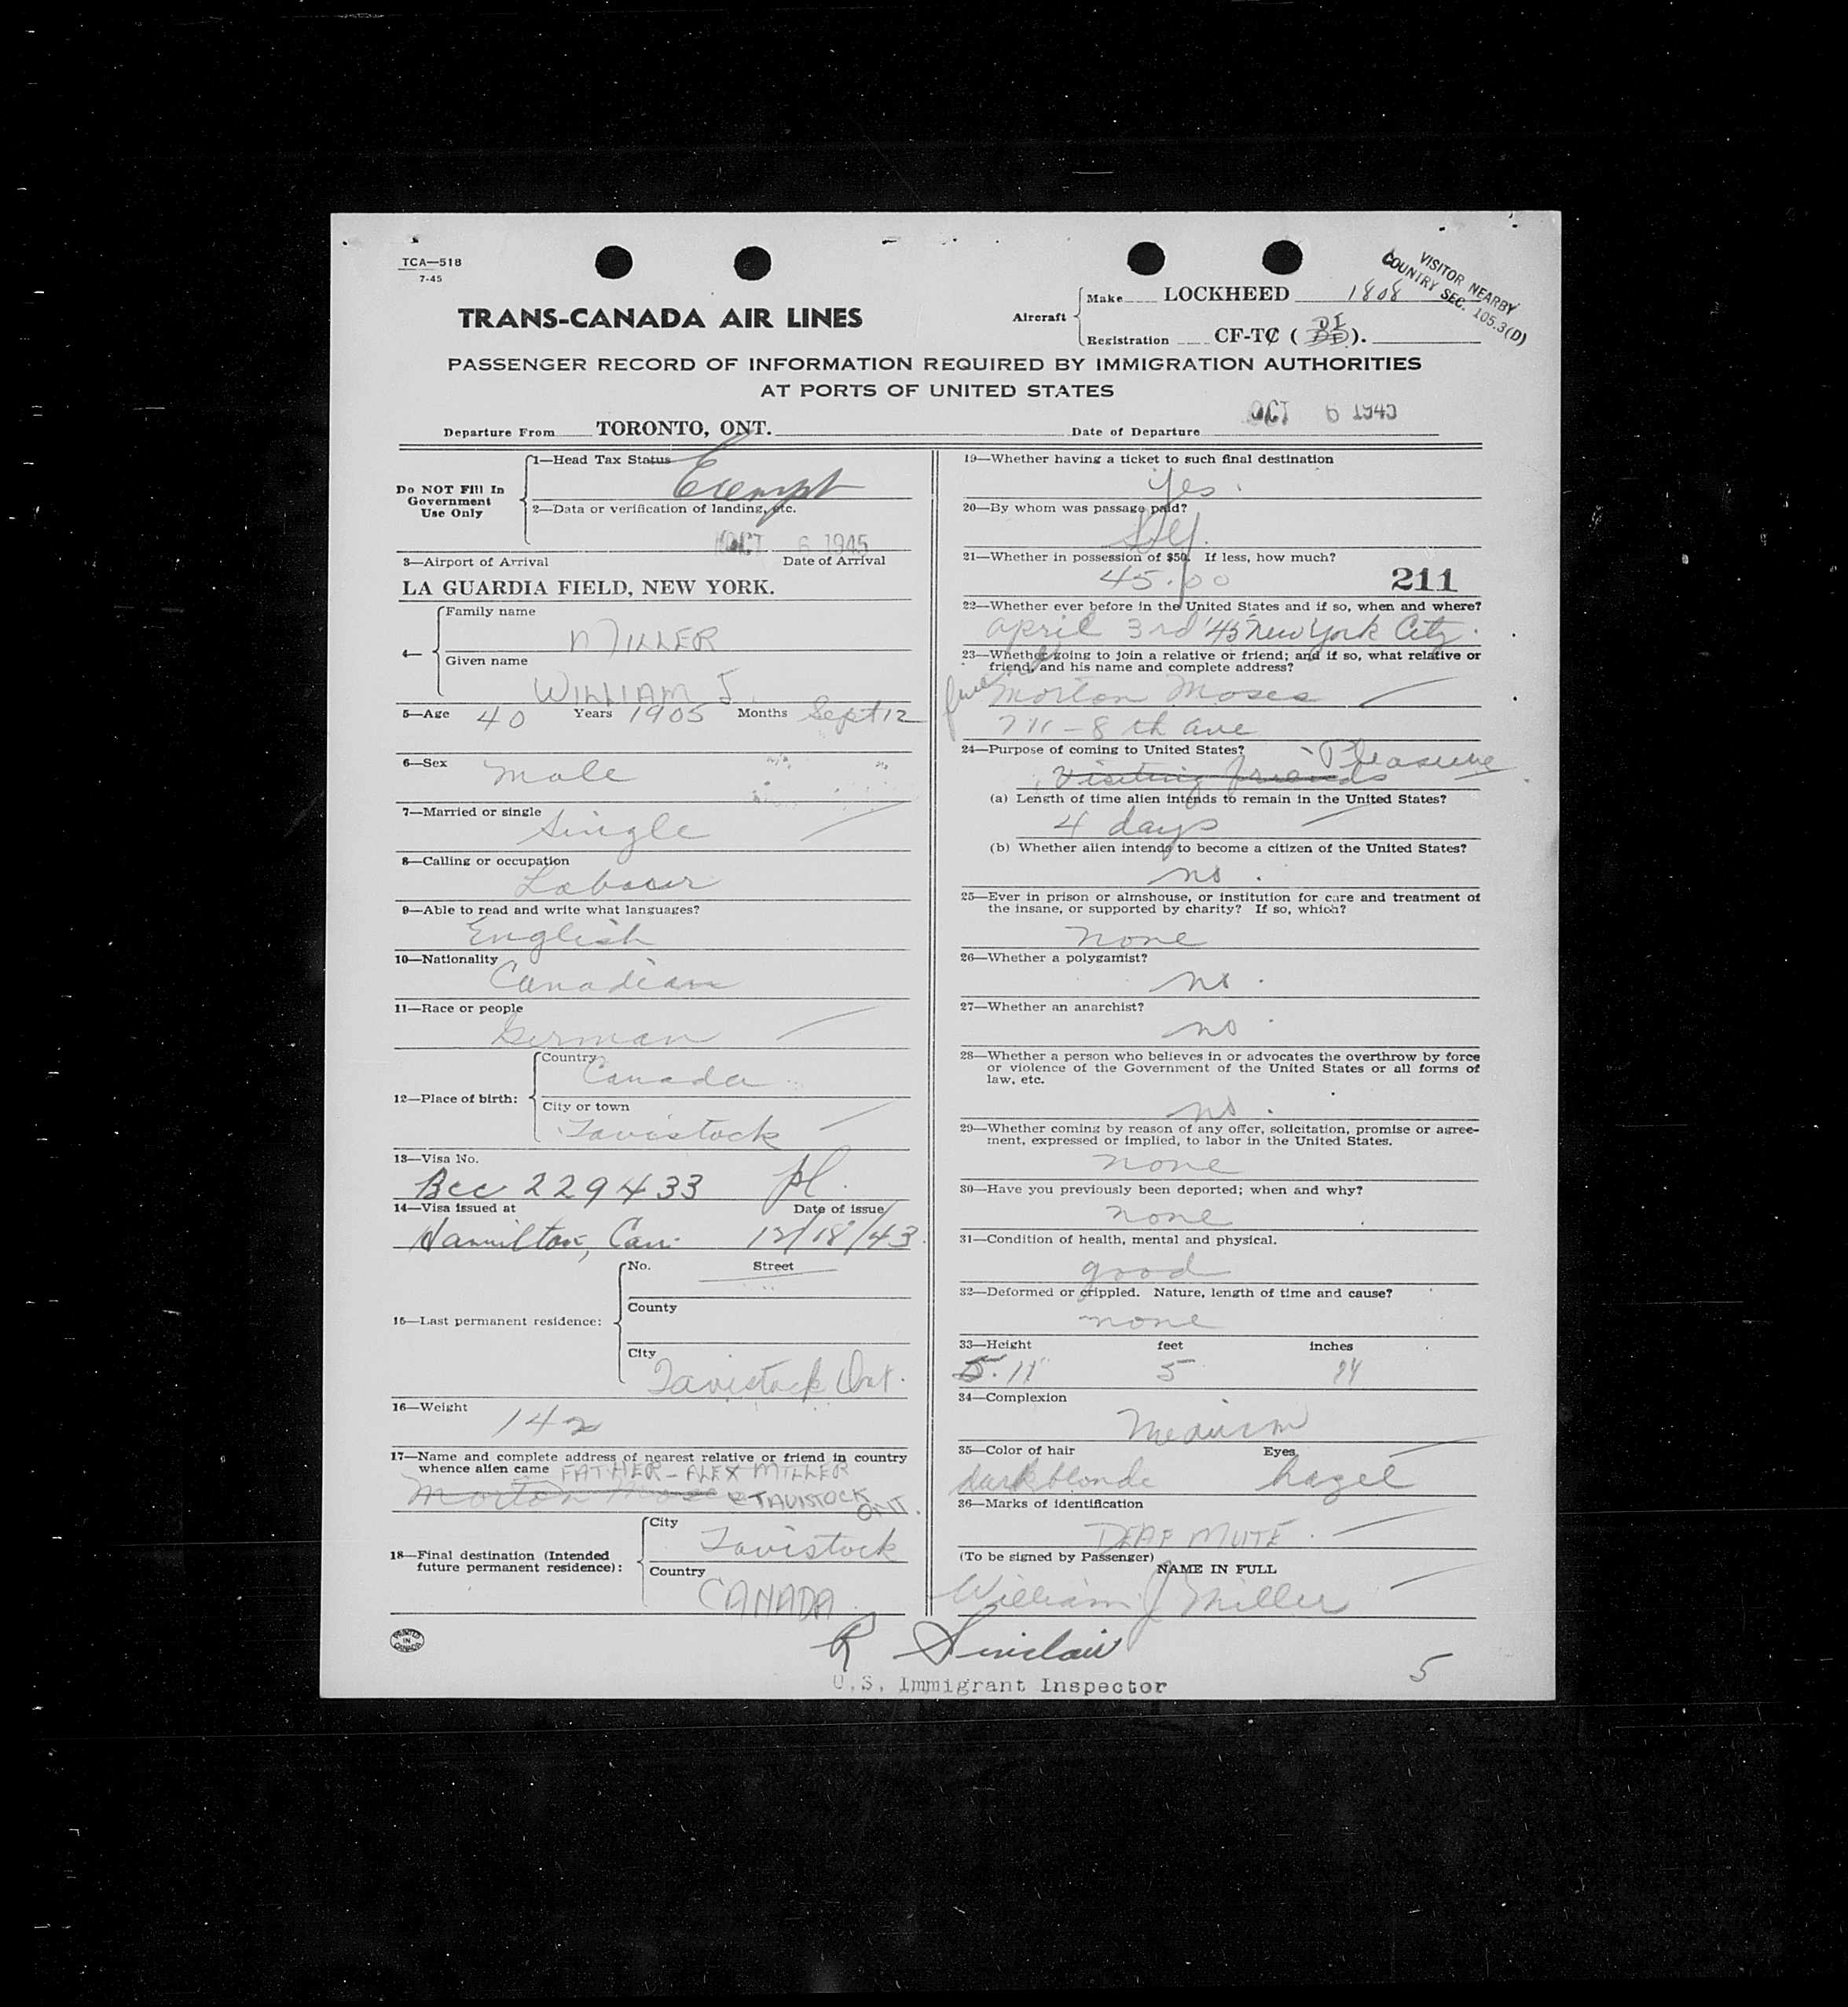 TCA—518
7-45
VISITOR NEARBY
COUNTRY SEC. 105.3(D)
TRANS-CANADA AIR LINES
Aircraft
Make LOCKHEED 1808
Registration CF-TC ( DI ).
PASSENGER RECORD OF INFORMATION REQUIRED BY IMMIGRATION AUTHORITIES
AT PORTS OF UNITED STATES
Departure From TORONTO, ONT. Date of Departure OCT 6 1945
Do NOT Fill In
Government
Use Only
1—Head Tax Status
Exempt
2—Data or verification of landing, etc.
OCT 6 1945
3—Airport of Arrival Date of Arrival
LA GUARDIA FIELD, NEW YORK.
4—
Family name
MILLER
Given name
WILLIAM J.
5—Age 40 Years 1905 Months Sept 12
6—Sex Male
7—Married or single
Single
8—Calling or occupation
Labour
9—Able to read and write what languages?
English
10—Nationality
Canadian
11—Race or people
German
12—Place of birth:
Country
Canada
City or town
Tavistock
13—Visa No.
Bcc 229433 pl.
14—Visa issued at Date of issue
Hamilton, Can. 12/18/43
15—Last permanent residence:
No. Street
County
City
Tavistock Ont.
16—Weight
142
17—Name and complete address of nearest relative or friend in country
whence alien came FATHER - ALEX MILLER
Morton Moses TAVISTOCK
ONT.
18—Final destination (Intended
future permanent residence):
City
Tavistock
Country
CANADA
PRINTED
IN
CANADA
19—Whether having a ticket to such final destination
Yes.
20—By whom was passage paid?
Self.
21—Whether in possession of $50. If less, how much?
45.00 211
22—Whether ever before in the United States and if so, when and where?
April 3rd '45 New York City.
23—Whether going to join a relative or friend; and if so, what relative or
friend, and his name and complete address?
Morton Moses
711 - 8th ave
24—Purpose of coming to United States? Pleasure
Visiting friends
(a) Length of time alien intends to remain in the United States?
4 days
(b) Whether alien intends to become a citizen of the United States?
no.
25—Ever in prison or almshouse, or institution for care and treatment of
the insane, or supported by charity? If so, which?
none
26—Whether a polygamist?
no.
27—Whether an anarchist?
no
28—Whether a person who believes in or advocates the overthrow by force
or violence of the Government of the United States or all forms of
law, etc.
no.
29—Whether coming by reason of any offer, solicitation, promise or agree-
ment, expressed or implied, to labor in the United States.
none
30—Have you previously been deported; when and why?
none
31—Condition of health, mental and physical.
good
32—Deformed or crippled. Nature, length of time and cause?
none
33—Height feet inches
5.11 5 11
34—Complexion
Medium
35—Color of hair Eyes
dark blonde hazel
36—Marks of identification
DEAF MUTE.
(To be signed by Passenger) NAME IN FULL
William J Miller
R Sinclair
U.S. Immigrant Inspector
5